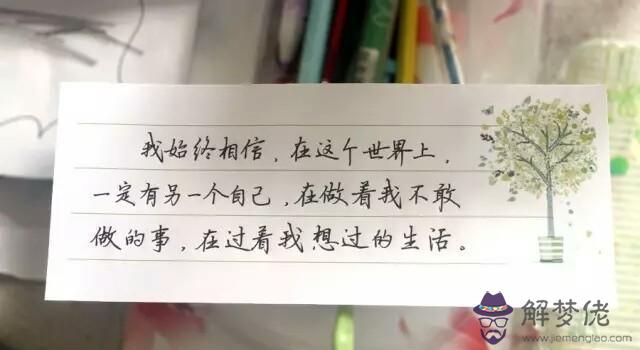 我始终相信，在这个世界上，
一定有另一个自己，在做着我不敢
做的事，在过着我想过的生活。
解梦佬
www.jiemenglao.com